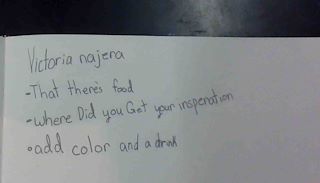 Victoria najera
-That there's food
-where Did you Get your inspenation
•add color and a drink